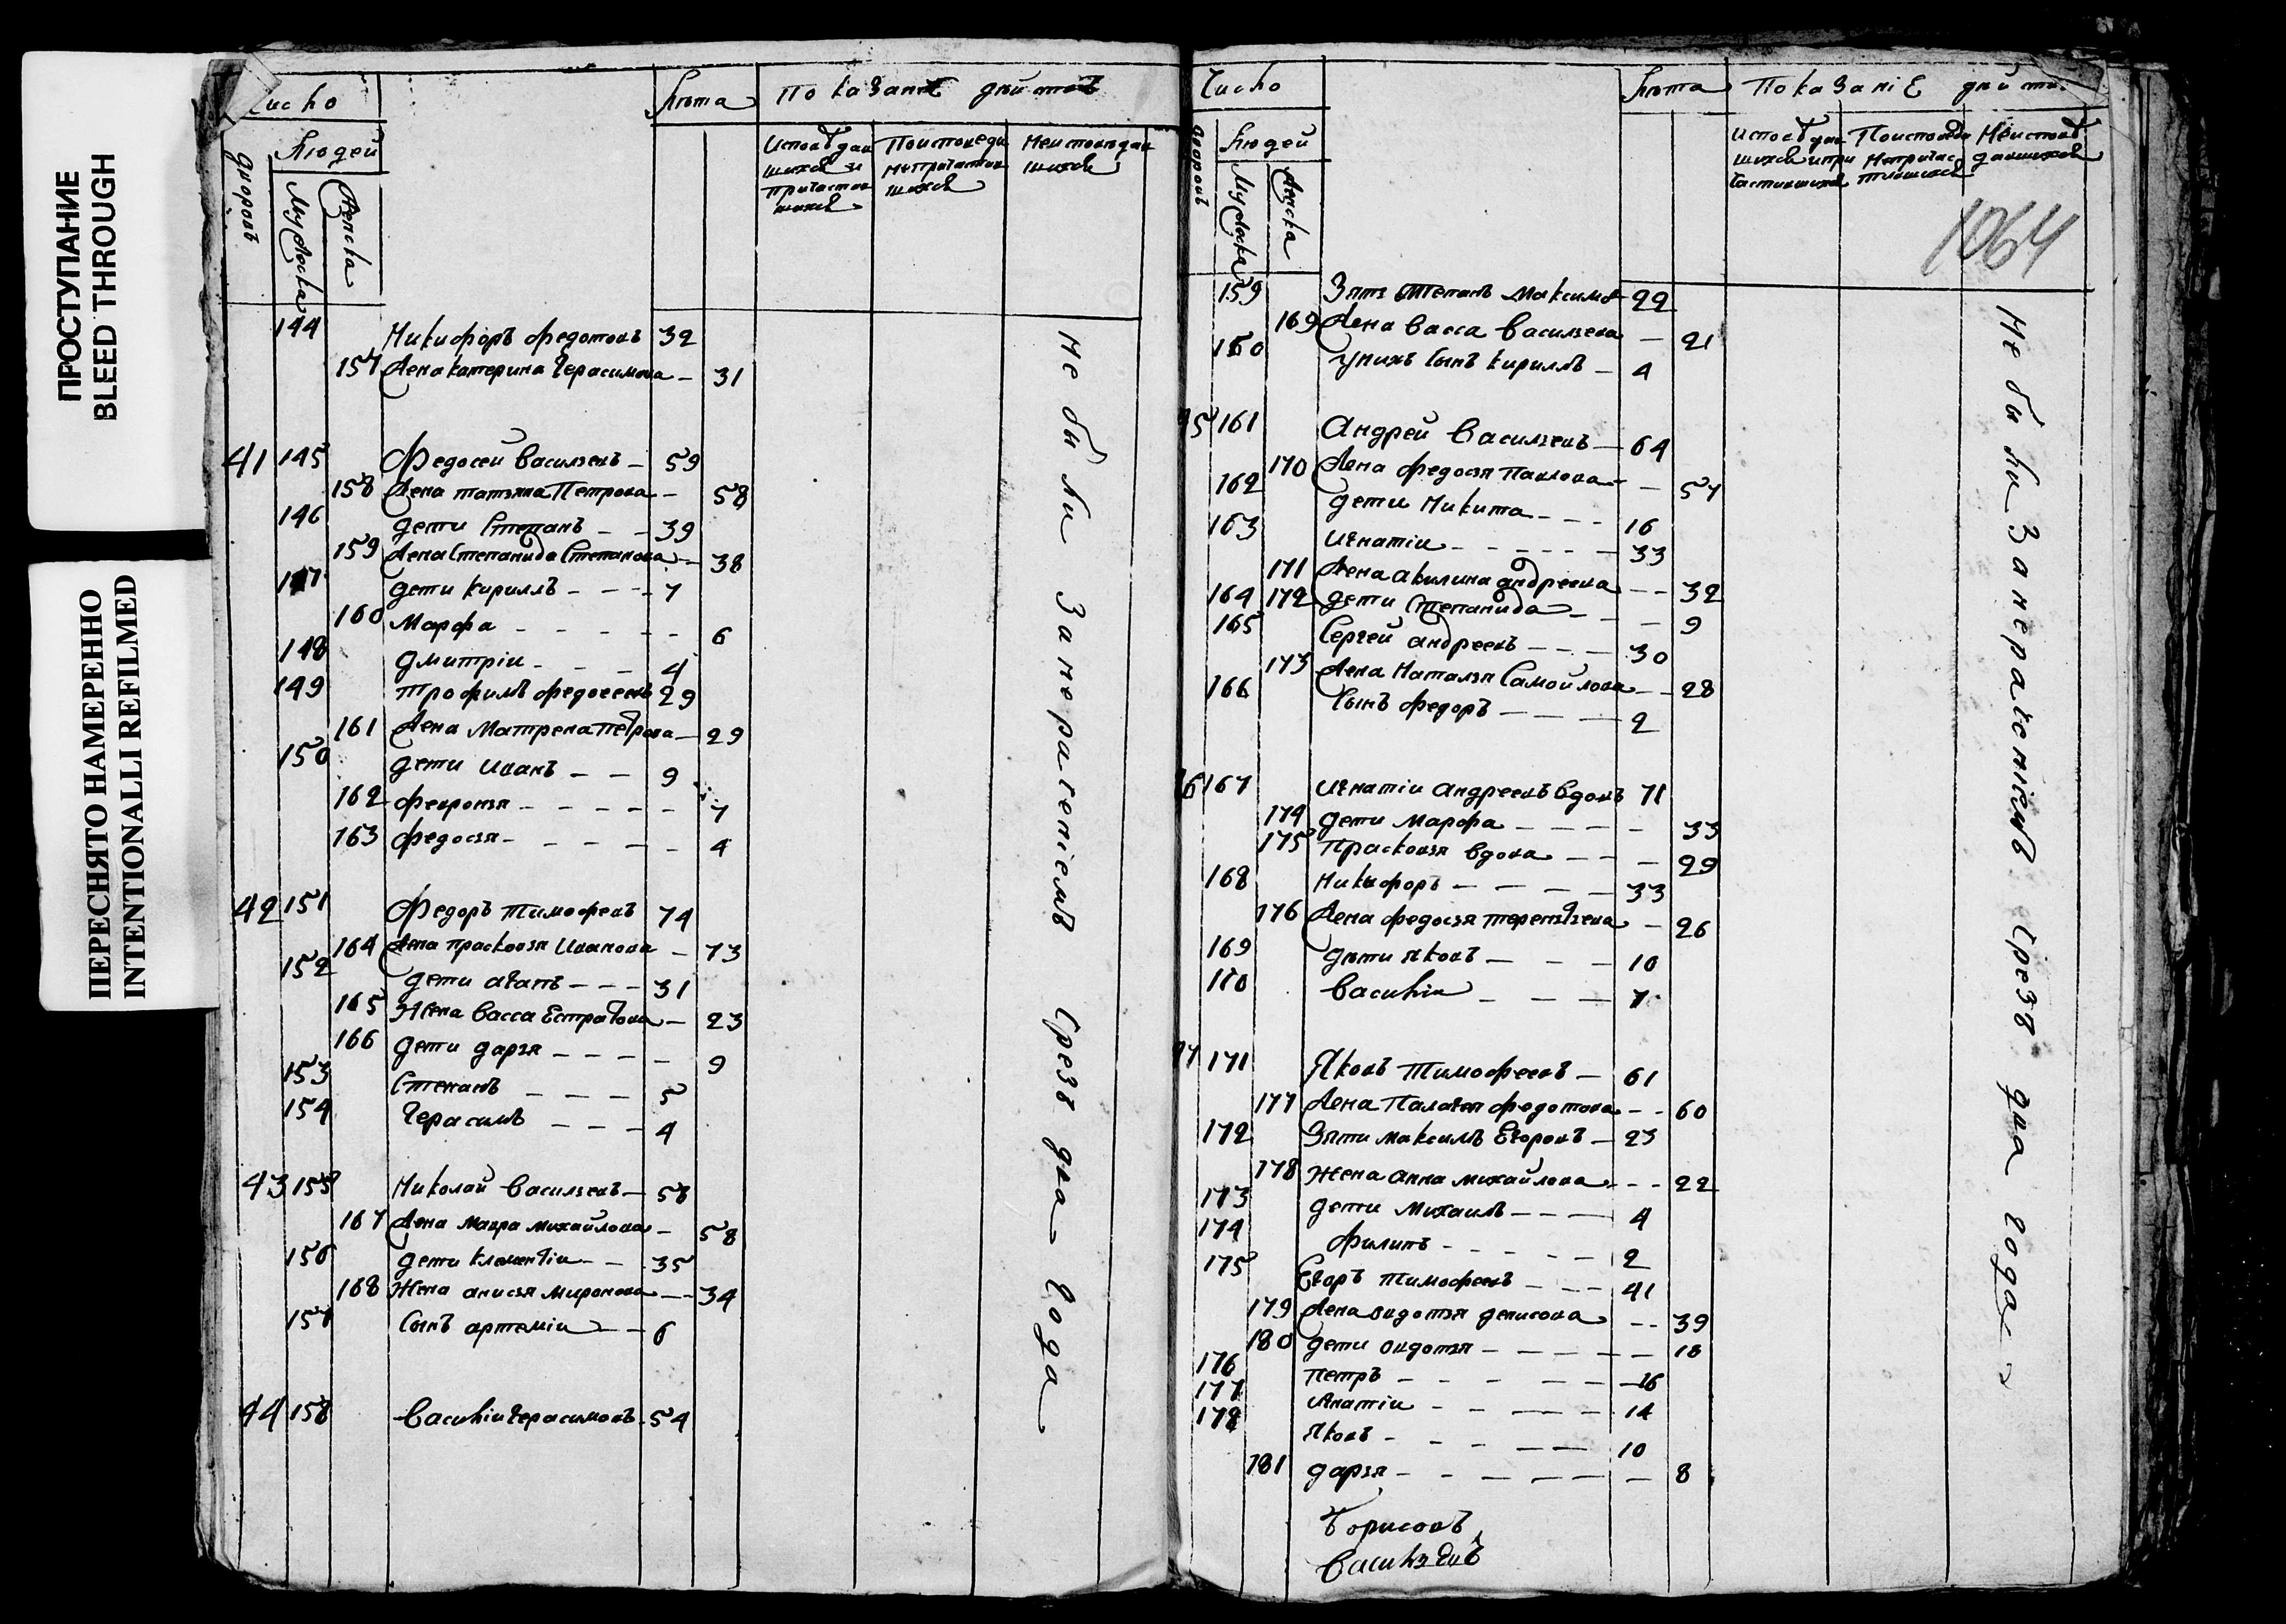 ПРОСТУПАНИЕ
BLEED THROUGH
ПЕРЕСНЯТО НАМЕРЕННО
INTENTIONALLI REFILMED
Число
Лѣта
Показание
дѣйствъ
дворовъ
Людей
Мужеска
Женска
144 Никифоръ Федотовъ 32
157 Жена Катерина Герасимова 31
41 145 Федосей Васильевъ 59
158 Жена Татьяна Петрова 58
146 дети Степанъ 39
159 Жена Степанида Степанова 38
147 дети Кириллъ 7
160 Марфа 6
148 Дмитріи 4
149 Трофимъ Федосеевъ 29
161 Жена Матрена Петрова 29
150 дети Иванъ 9
162 Февронья 7
163 Федосья 4
42 151 Федоръ Тимофеевъ 74
164 Жена Прасковья Иванова 73
152 дети Агапъ 31
165 Жена Васса Естратова 23
166 дети Дарья 9
153 Степанъ 5
154 Герасимъ 4
43 155 Николай Васильевъ 58
167 Жена Мавра Михайлова 58
156 дети Клементіи 35
168 Жена Анисья Миронова 34
157 Сынъ Артеміи 6
44 158 Василіи Герасимовъ 54
Не были За нераченіемъ Чрезъ два года
Число
Лѣта
Показаніе
дворовъ
Людей
Мужеска
Женска
1064
159 Зять Степанъ Максимов 22
169 Жена Васса Васильева 21
160 у нихъ Сынъ Кириллъ 4
45 161 Андрей Васильевъ 64
170 Жена Федосья Павлова 57
162 дети Никита 16
163 Игнатіи 33
171 Жена Акилина Андреева 32
164 172 дети Степанида 9
165 Сергей Андреевъ 30
173 Жена Наталья Самойлова 28
166 Сынъ Федоръ 2
46 167 Игнатіи Андреевъ вдовъ 71
174 дети Марфа 33
175 Прасковья вдова 29
168 Никифоръ 33
176 Жена Федосья Терентьева 26
169 дѣти Яковъ 10
170 Василіи 7
47 171 Яковъ Тимофеевъ 61
177 Жена Палагея Федотова 60
172 Зяти Максимъ Егоровъ 23
178 Жена Анна Михайлова 22
173 дети Михаилъ 4
174 Филипъ 2
175 Егоръ Тимофеевъ 41
179 Жена Овдотья Денисова 39
180 дети Овдотья 18
176 Петръ 16
177 Игнатіи 14
178 Яковъ 10
181 Дарья 8
Не были За нераченіемъ Чрезъ два года
Борисовъ
Васильевъ